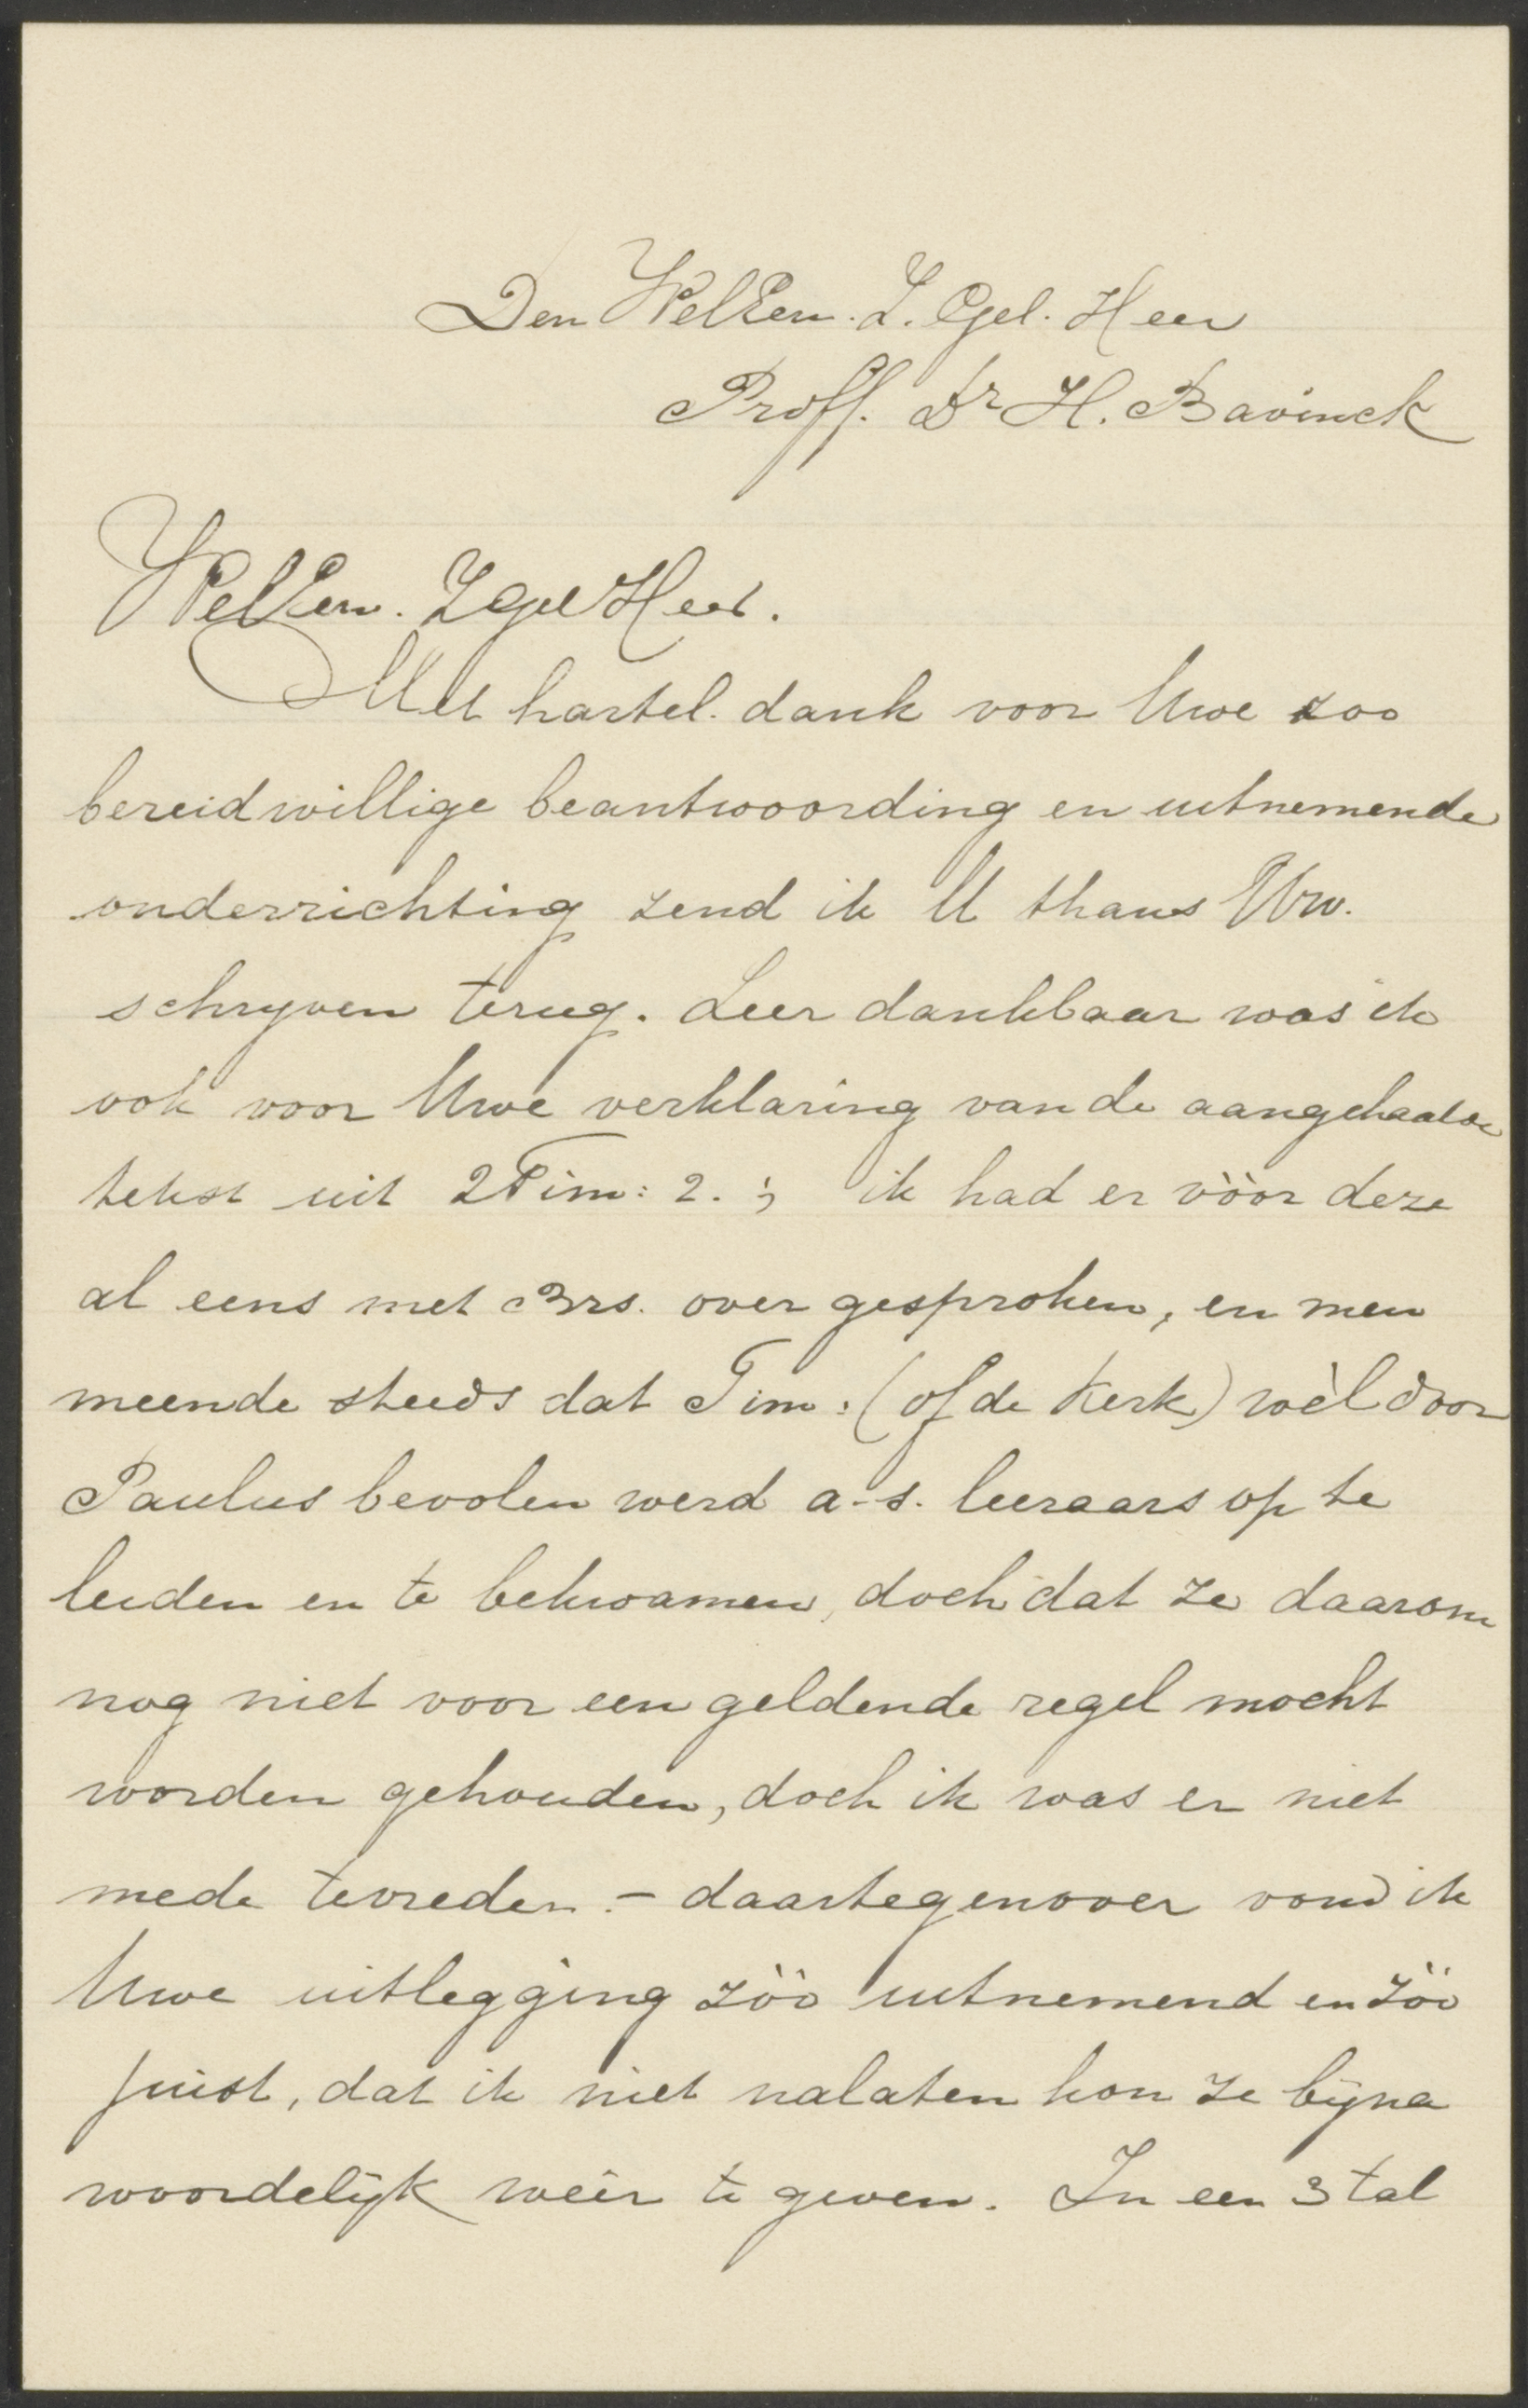 Den WelEerw. Z. Gel. Heer
Proff. Dr H. Bavinck
WelEerw. ZGel Heer.
Met hartel. dank voor Uwe zoo
bereidwillige beantwoording en uitnemende
onderrichting zend ik U thans Uw.
schryven terug. Zeer dankbaar was ik
ook voor Uwe verklaring van de aangehaalde
tekst uit 2 Tim: 2. ; ik had er vòòr deze
al eens met Brs. over gesproken, en men
meende steeds dat Tim: (of de Kerk) wèl door
Paulus bevolen werd a-s. leeraars op te
leiden en te bekwamen, doch dat ze daarom
nog niet voor een geldende regel mocht
worden gehouden, doch ik was er niet
mede tevreden. - daartegenover vond ik
Uwe uitlegging zòò uitnemend en zòò
juist, dat ik niet nalaten kon ze byna
woordelijk wéér te geven. In een 3 tal